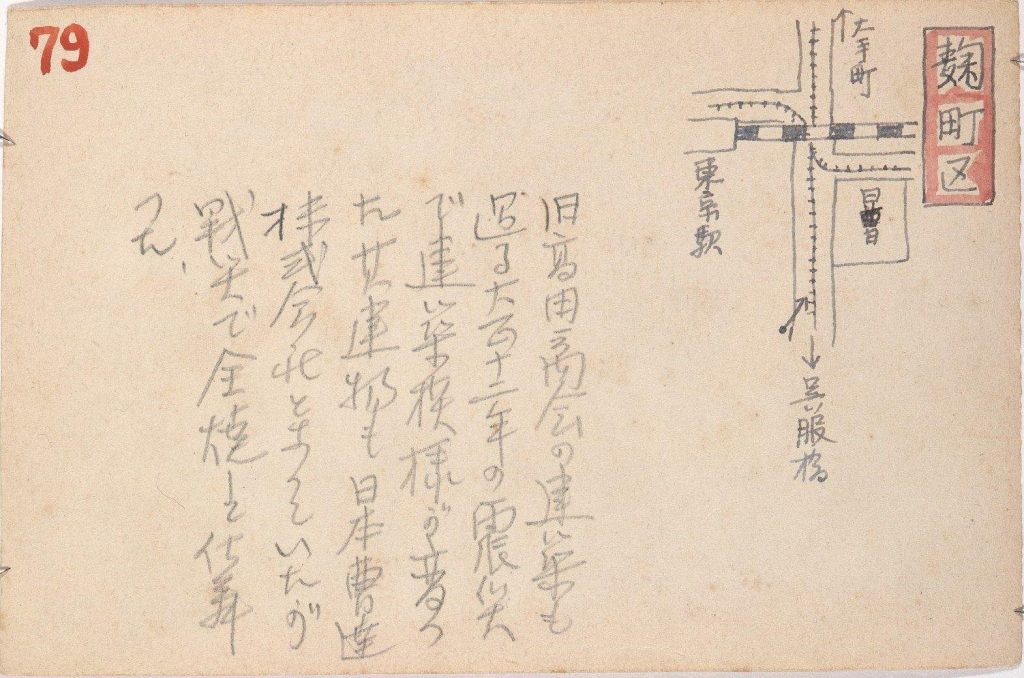 79
麹町区
↑大手町
日曹
東京駅
↓呉服橋
旧高田商会の建築も
過る大正十二年の震災
で建築模様が変つ
た其建物も日本曹達
株式会社となつていたが
戦災で全焼して仕舞
つた、